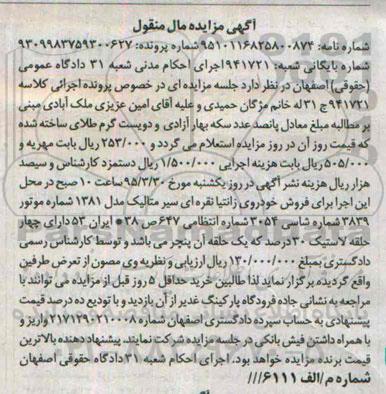 آگهی مزایده مال منقول
شماره نامه: ۹۵۱۰۱۱۶۸۲۵۸۰۰۸۷۴ شماره پرونده: ۹۳۰۹۹۸۳۷۵۹۳۰۰۶۲۷
شماره بایگانی شعبه: ۹۴۱۷۲۱ اجرای احکام مدنی شعبه ۳۱ دادگاه عمومی
(حقوقی) اصفهان در نظر دارد جلسه مزایده ای در خصوص پرونده اجرائی کلاسه
۹۴۱۷۲۱ ج ۳۱ له خانم مژگان حمیدی و علیه آقای امین عزیزی ملک آبادی مبنی
بر مطالبه مبلغ معادل پانصد عدد سکه بهار آزادی و دویست گرم طلای ساخته شده
که قیمت روز آن در روز مزایده استعلام می گردد و ۲۵۳/۰۰۰ ریال بابت مهریه و
۵۰۵/۰۰۰ ریال بابت هزینه اجرایی ۱/۵۰۰/۰۰۰ ریال دستمزد کارشناس و سیصد
هزار ریال هزینه نشر آگهی در روز یکشنبه مورخ ۹۵/۳/۳۰ ساعت ۱۰ صبح در محل
این اجرا برای فروش خودروی زانتیا نقره ای سیر متالیک مدل ۱۳۸۱ شماره موتور
۳۸۳۹ شماره شاسی ۳۰۵۴ شماره انتظامی ۶۴۷ ص ۳۸ ایران ۵۳ دارای چهار
حلقه لاستیک ۳۰ درصد که یک حلقه آن پنچر می باشد و توسط کارشناس رسمی
دادگستری بمبلغ ۱۳۰/۰۰۰/۰۰۰ ریال ارزیابی و نظریه وی مصون از تعرض طرفین
واقع گردیده برگزار نماید لذا طالبین خرید حداقل ۵ روز قبل از مزایده می توانند با
مراجعه به نشانی جاده فرودگاه پارکینگ غدیر از آن بازدید و با تودیع ده درصد قیمت
پیشنهادی به حساب سپرده دادگستری اصفهان شماره ۲۱۷۱۲۹۰۲۱۰۰۰۸ واریز و
با همراه داشتن فیش بانکی در جلسه مزایده شرکت نمایند. پیشنهاد دهنده بالاترین
قیمت برنده مزایده خواهد بود. اجرای احکام شعبه ۳۱ دادگاه حقوقی اصفهان
شماره م/الف ۶۱۱۱///